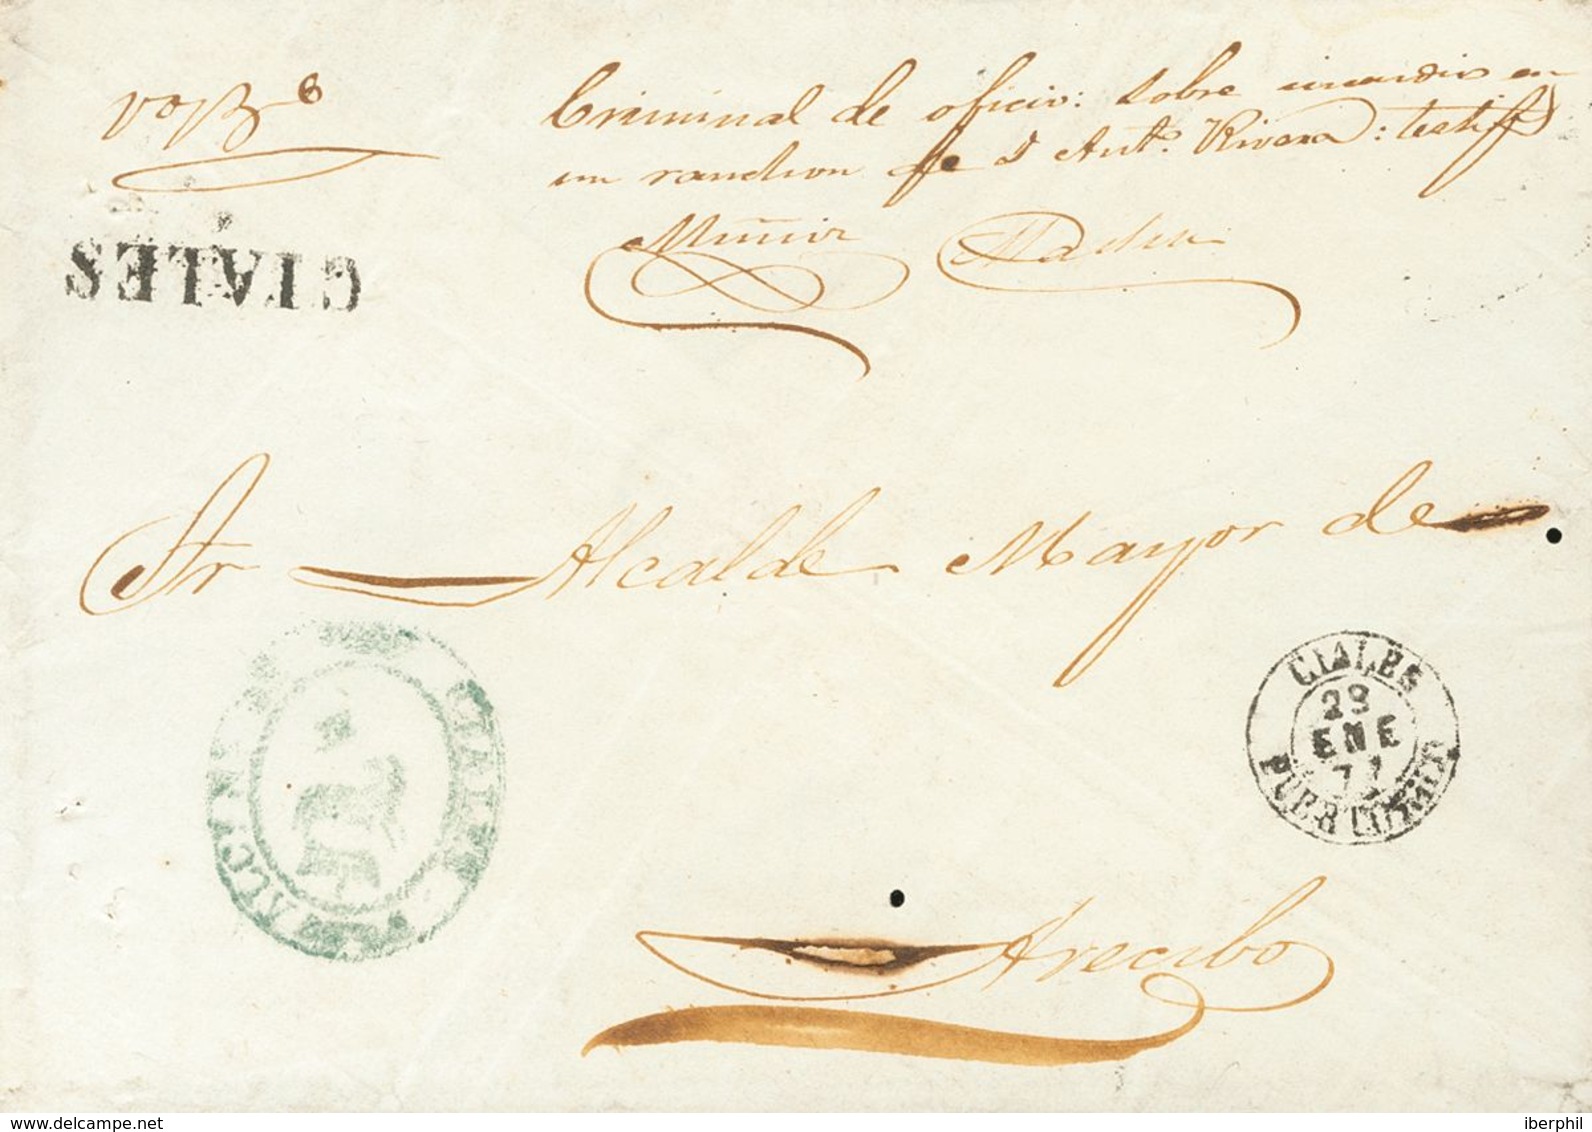 VoBo
Criminal de oficio: sobre incendio en
un ranchon de D Anto. Rivera: testiff
Muñoz
CIALES
Sr Alcalde Mayor de
CIALES
29
ENE
PUERTO-RICO
CIALES
Arecibo
www.delcampe.net
iberphil